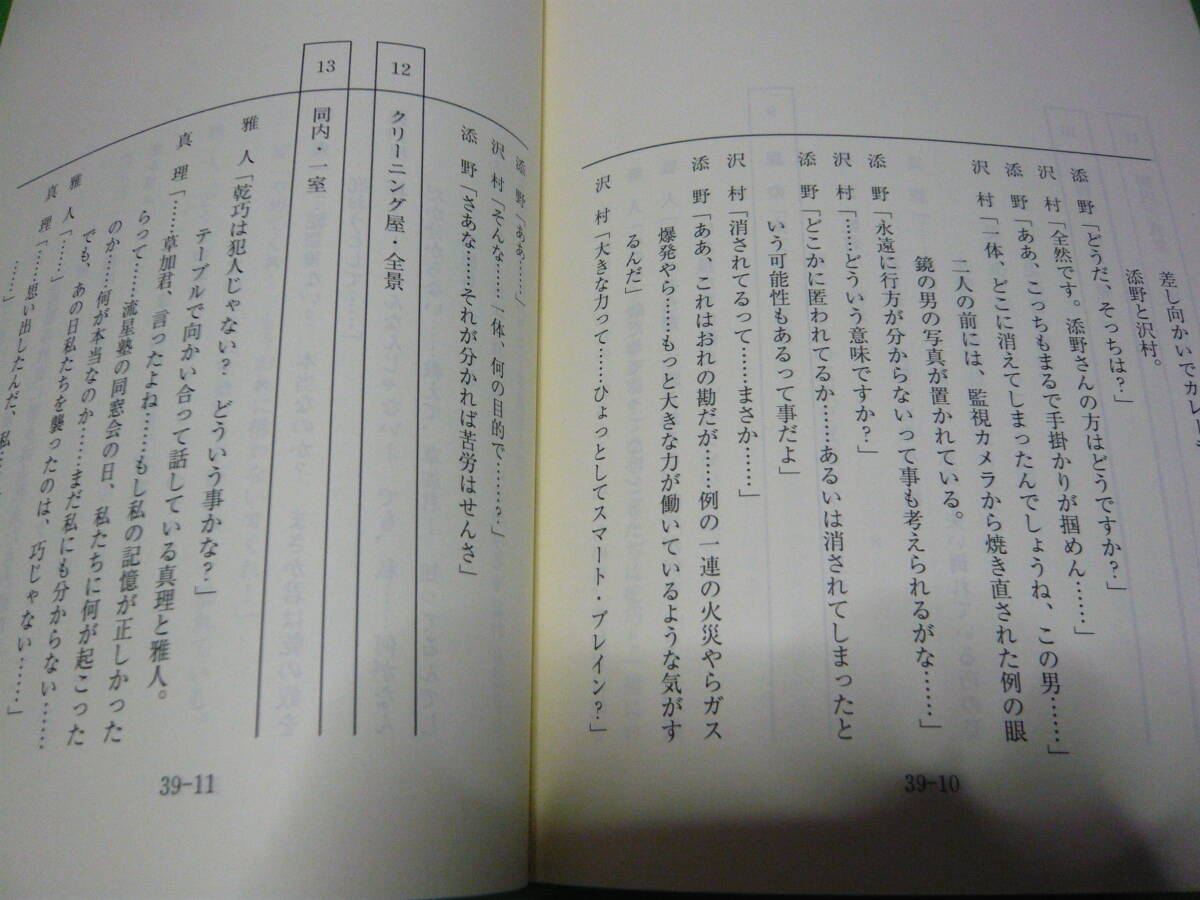 差し向かいでカレー
添野と沢村。
添 野「どうだ、そっちは?」
沢 村「全然です。添野さんの方はどうですか?」
添 野「ああ、こっちもまるで手掛かりが掴めん……」
沢 村「一体、どこに消えてしまったんでしょうね、この男……」
二人の前には、監視カメラから焼き直された例の眼
鏡の男の写真が置かれている。
添 野「永遠に行方が分からないって事も考えられるがな……」
沢 村「……どういう意味ですか?」
添 野「どこかに匿われてるか……あるいは消されてしまったと
いう可能性もあるって事だよ」
沢 村「消されてるって……まさか……」
添 野「ああ、これはおれの勘だが……例の一連の火災やらガス
爆発やら……もっと大きな力が働いているような気がす
るんだ」
沢 村「大きな力って……ひょっとしてスマート・ブレイン?」
39-10
添 野「ああ……」
沢 村「そんな……一体、何の目的で……?」
添 野「さあな……それが分かれば苦労はせんさ」
12 クリーニング屋・全景
13 同内・一室
雅 人「乾巧は犯人じゃない? どういう事かな?」
テーブルで向かい合って話している真理と雅人。
真 理「……草加君、言ったよね……もし私の記憶が正しかった
らって……流星塾の同窓会の日、私たちに何が起こった
のか……何が本当なのか……まだ私にも分からない……
でも、あの日私たちを襲ったのは、巧じゃない……」
雅 人「……」
真 理「……思い出したんだ、私
……」
39-11